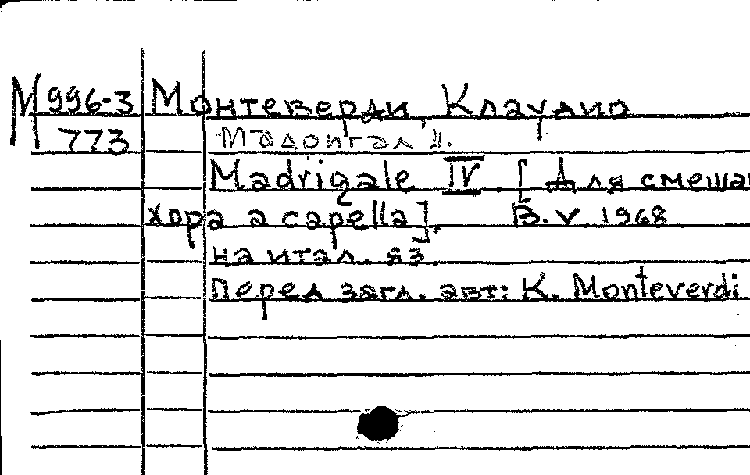 М 996-3 Монтеверди, Клаудио
773 Мадригал
Madrigale IV. [Для смешан
хора a capella]. В. v. 1968
на итал. яз.
Перед загл. авт: К. Monteverdi